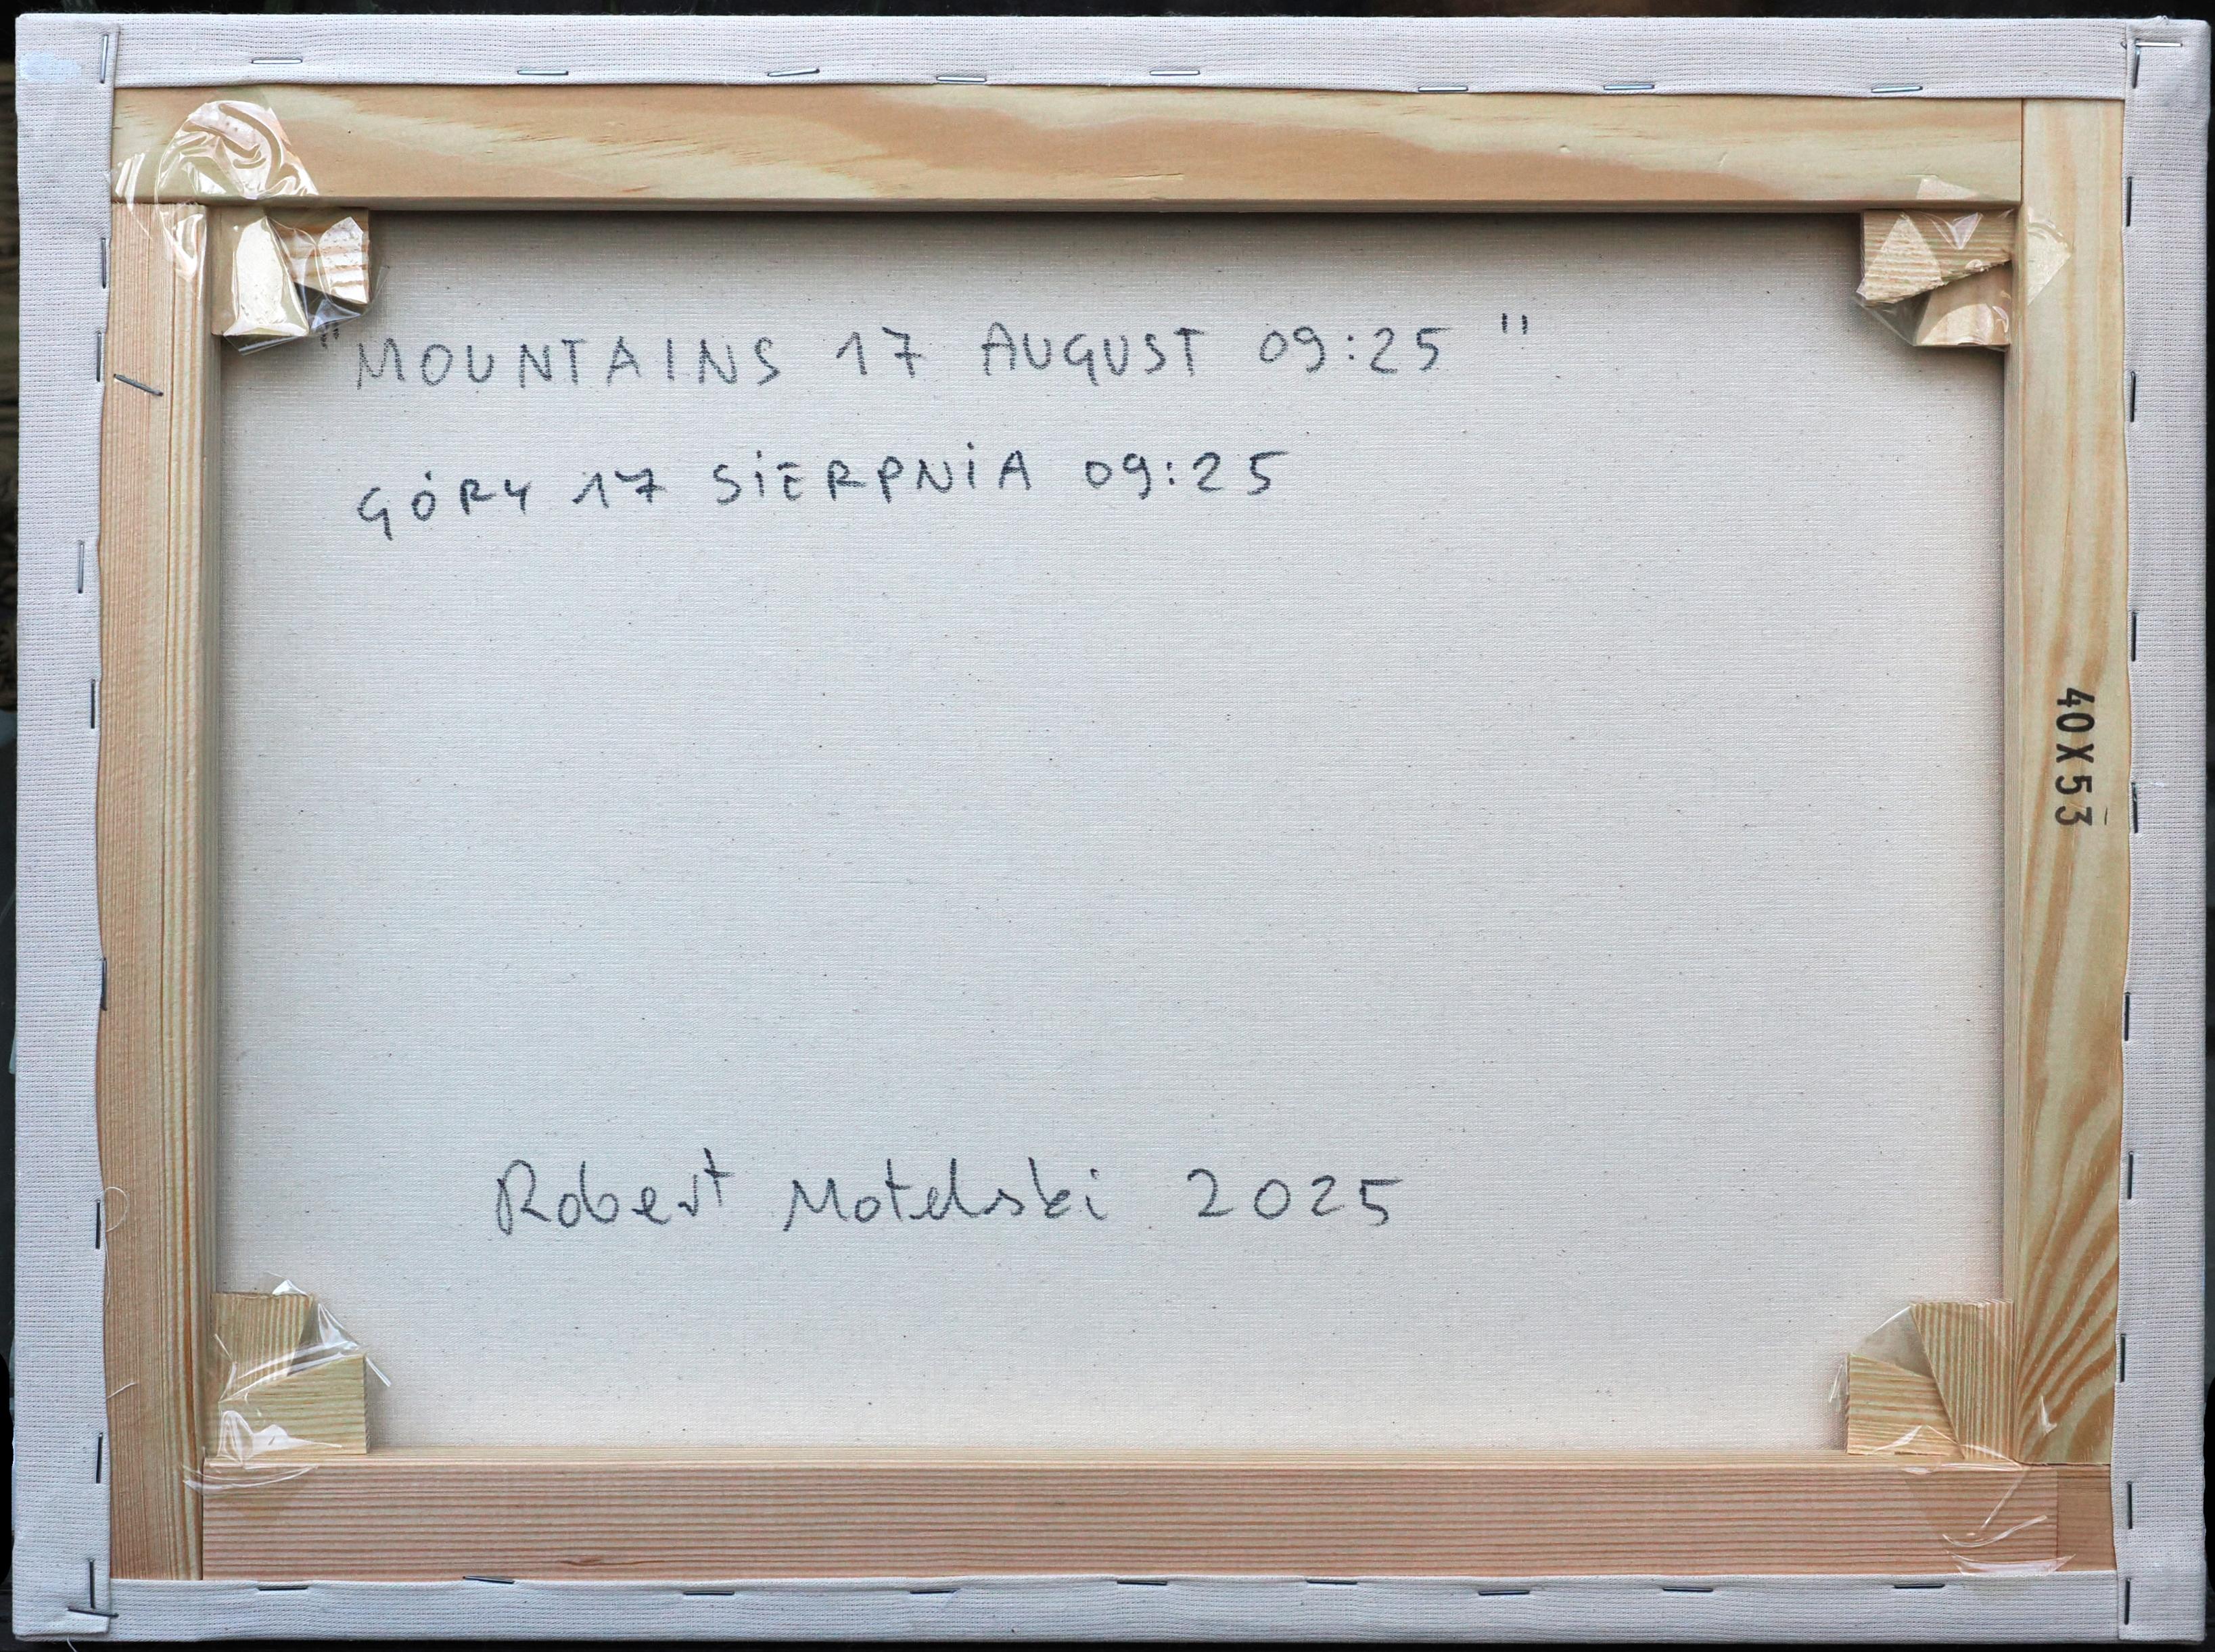 "MOUNTAINS 17 AUGUST 09:25"
GÓRY 17 SIERPNIA 09:25
40X53
Robert Motelski 2025